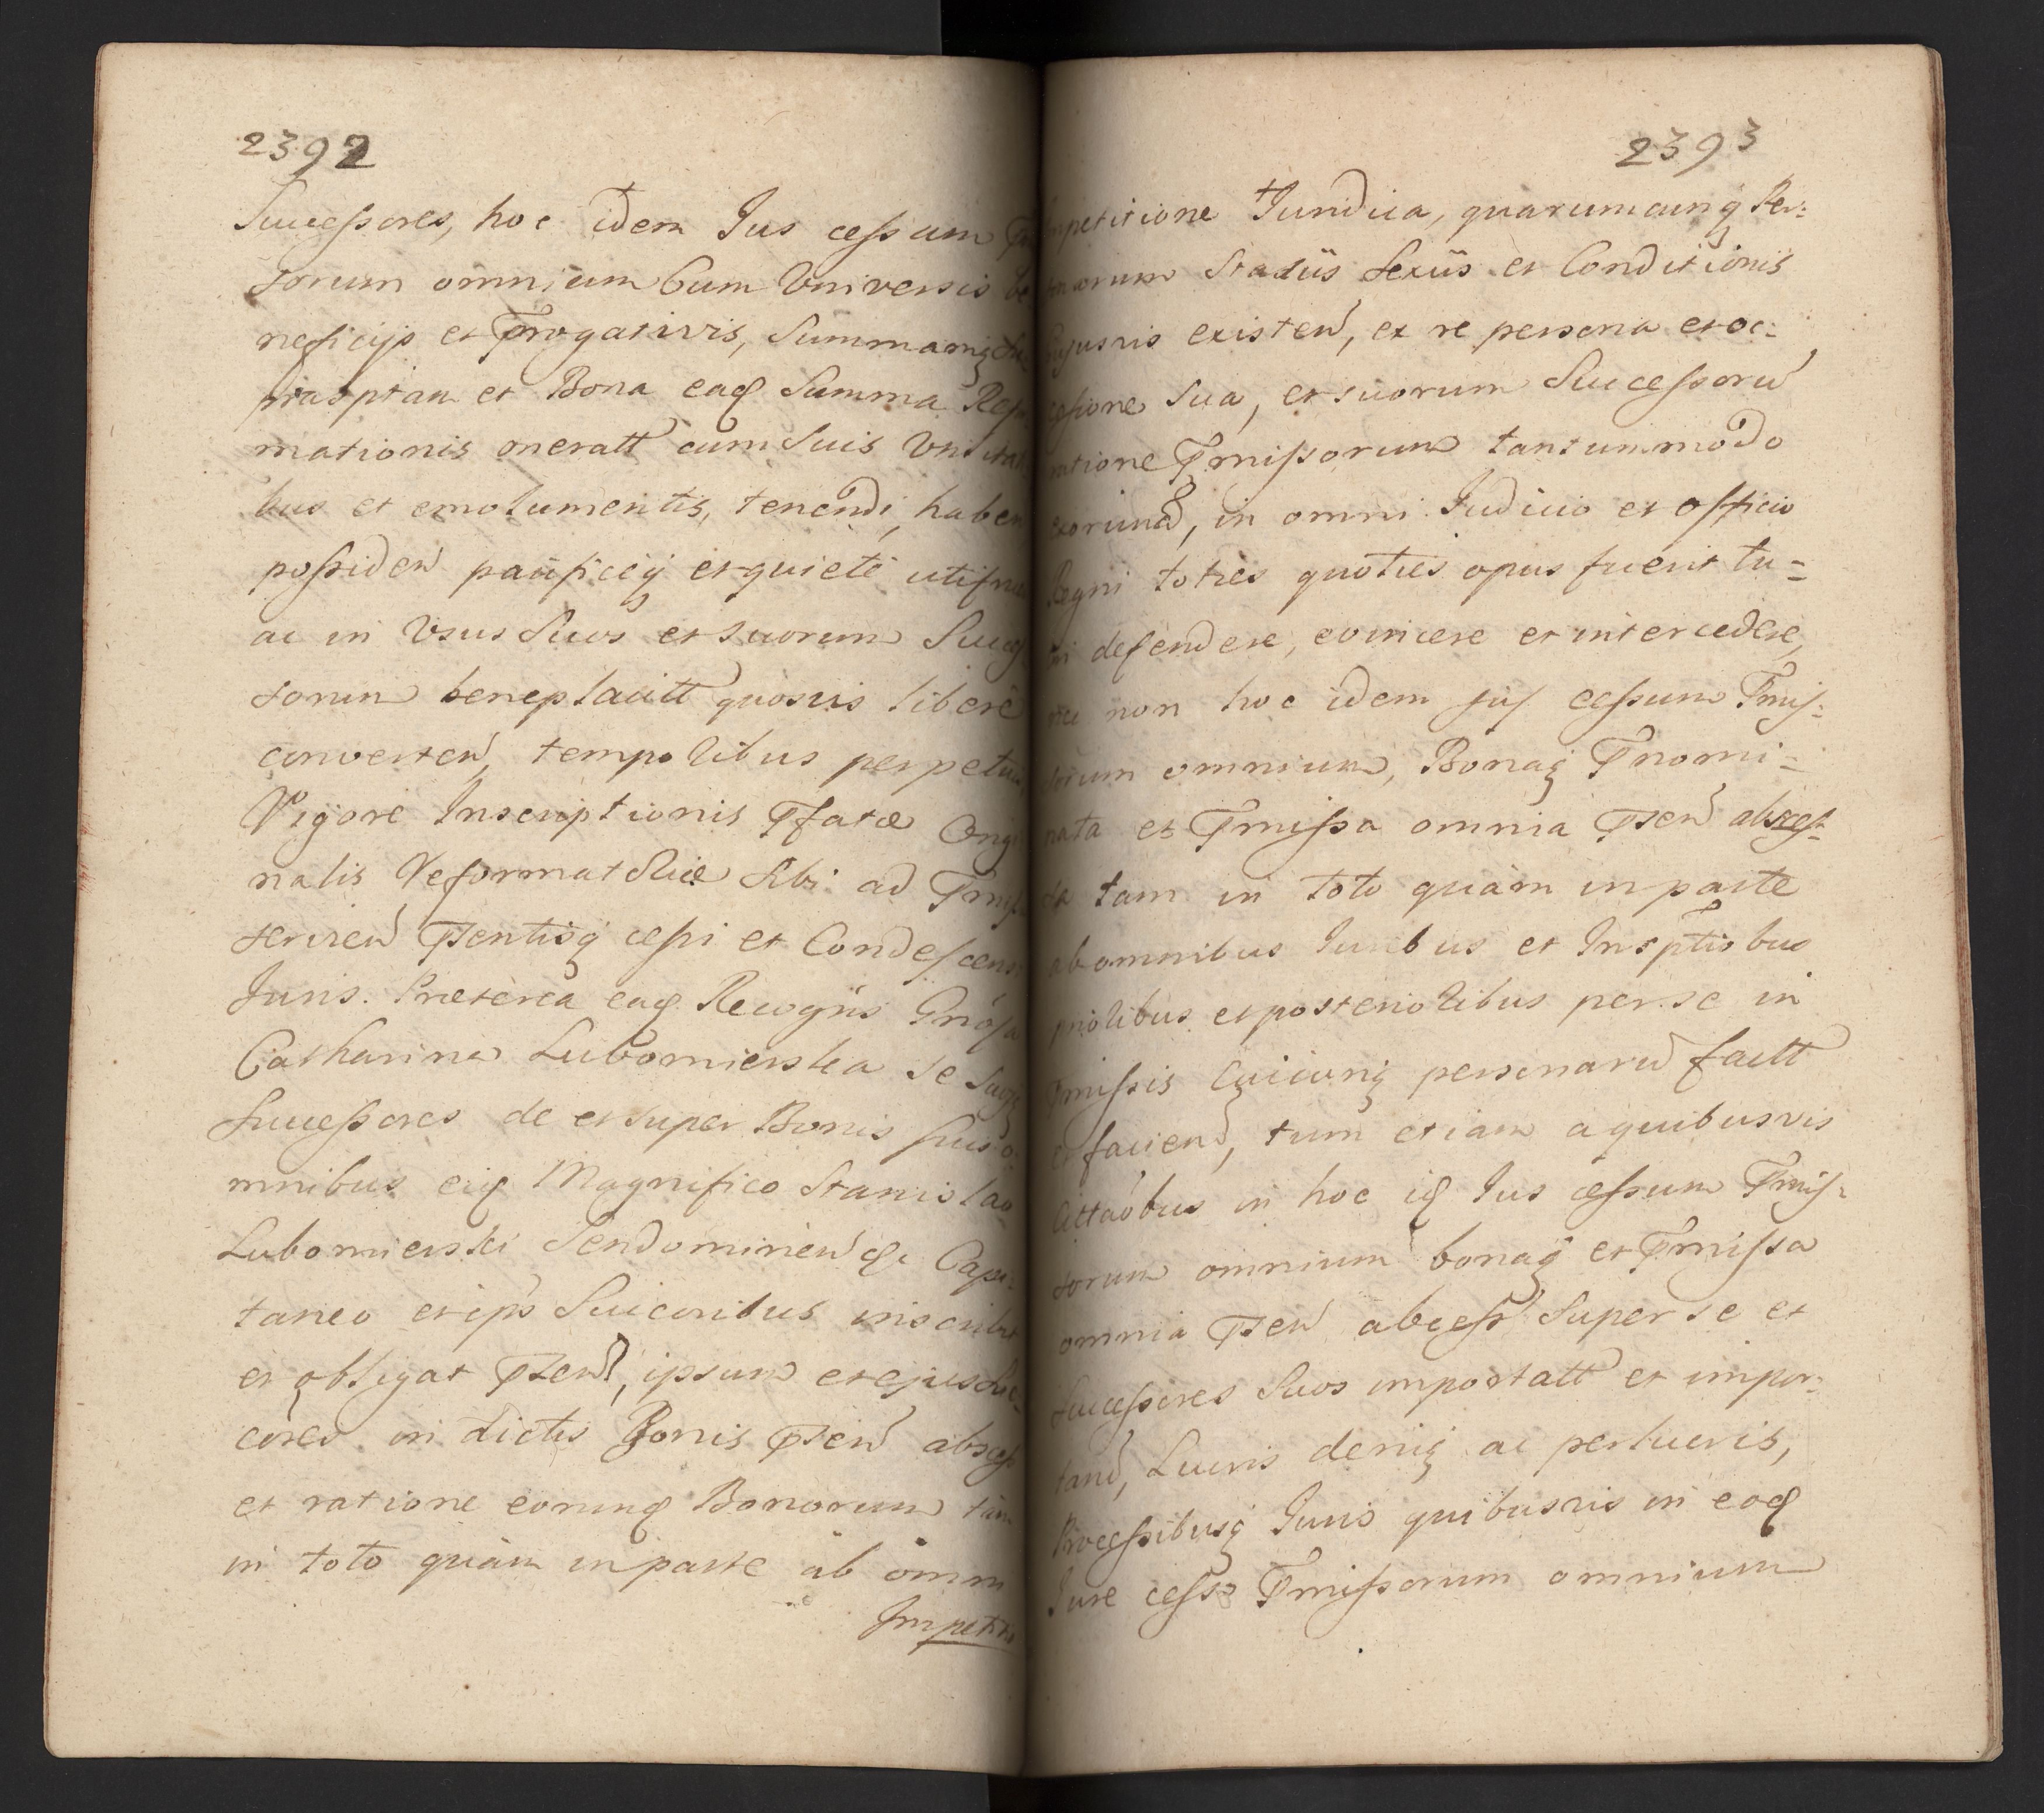 2392
Successores, hoc idem Jus cessum
sorum omnium Cum Universis be
neficijs et Prrogativis, Summamq
et Bona eaq Summa
mationis oneratt cum Suis
bus et emolumentis, tenendi, haben
possiden pacificeq et quiete
ac in Usus Suos et suorum Succes
sorum beneplacitt quosvis libere
converten, temporibus perpetuis
Vigore Inscriptionis Pfatæ Origi
nalis Reformatoriæ Sibi ad Pmiss
servien Psentisq cessi et Condescens
Juris. Præterea eaq Recogns Gnosa
Catharina Lubomierska se suosq
Successores de et super Bonis suis o
mnibus eiq Magnifico Stanislao
Lubomierski Sendomirien Capi:
taneo et ips Succoribus inscribit
et obligat Psen, ipsum et ejus Suc=
cores in dictis Bonis Psen abscess
et ratione eorunq Bonorum tam
in toto quàm in parte ab omni
Impetitio
2393
mpetitione Juridica, quarumcunq Per:
sonarum Statüs Sexüs et Conditionis
cujusvis existen, ex re persona et oc:
cessione Sua, et suorum Successoru
ratione Pmissorum tantummodo
exoriund, in omni Judicio et officio
Regni toties quoties opus fuerit tu=
eri defendere, evincere et intercedere,
nec non hoc idem jus cessum Pmis:
sorum omnium, Bonaq Pnomi=
nata et Pmissa omnia Psen abscess:
sa tam in toto quàm in parte
ab omnibus Juribus et Insptiobus
prioribus et posterioribus per se in
Pmissis cuicunq personaru factt
et facien, tum etiam a quibusvis
Cittaobus in hoc iq Jus cessum Pmis:
sorum omnium bonaq et Pmissa
omnia Psen abcess Super se et
Successores Suos importatt et impor:
tand, Lucris deniq ac perlucris,
Processibusq Juris quibusvis in eoq
Jure cesso Pmissorum omnium